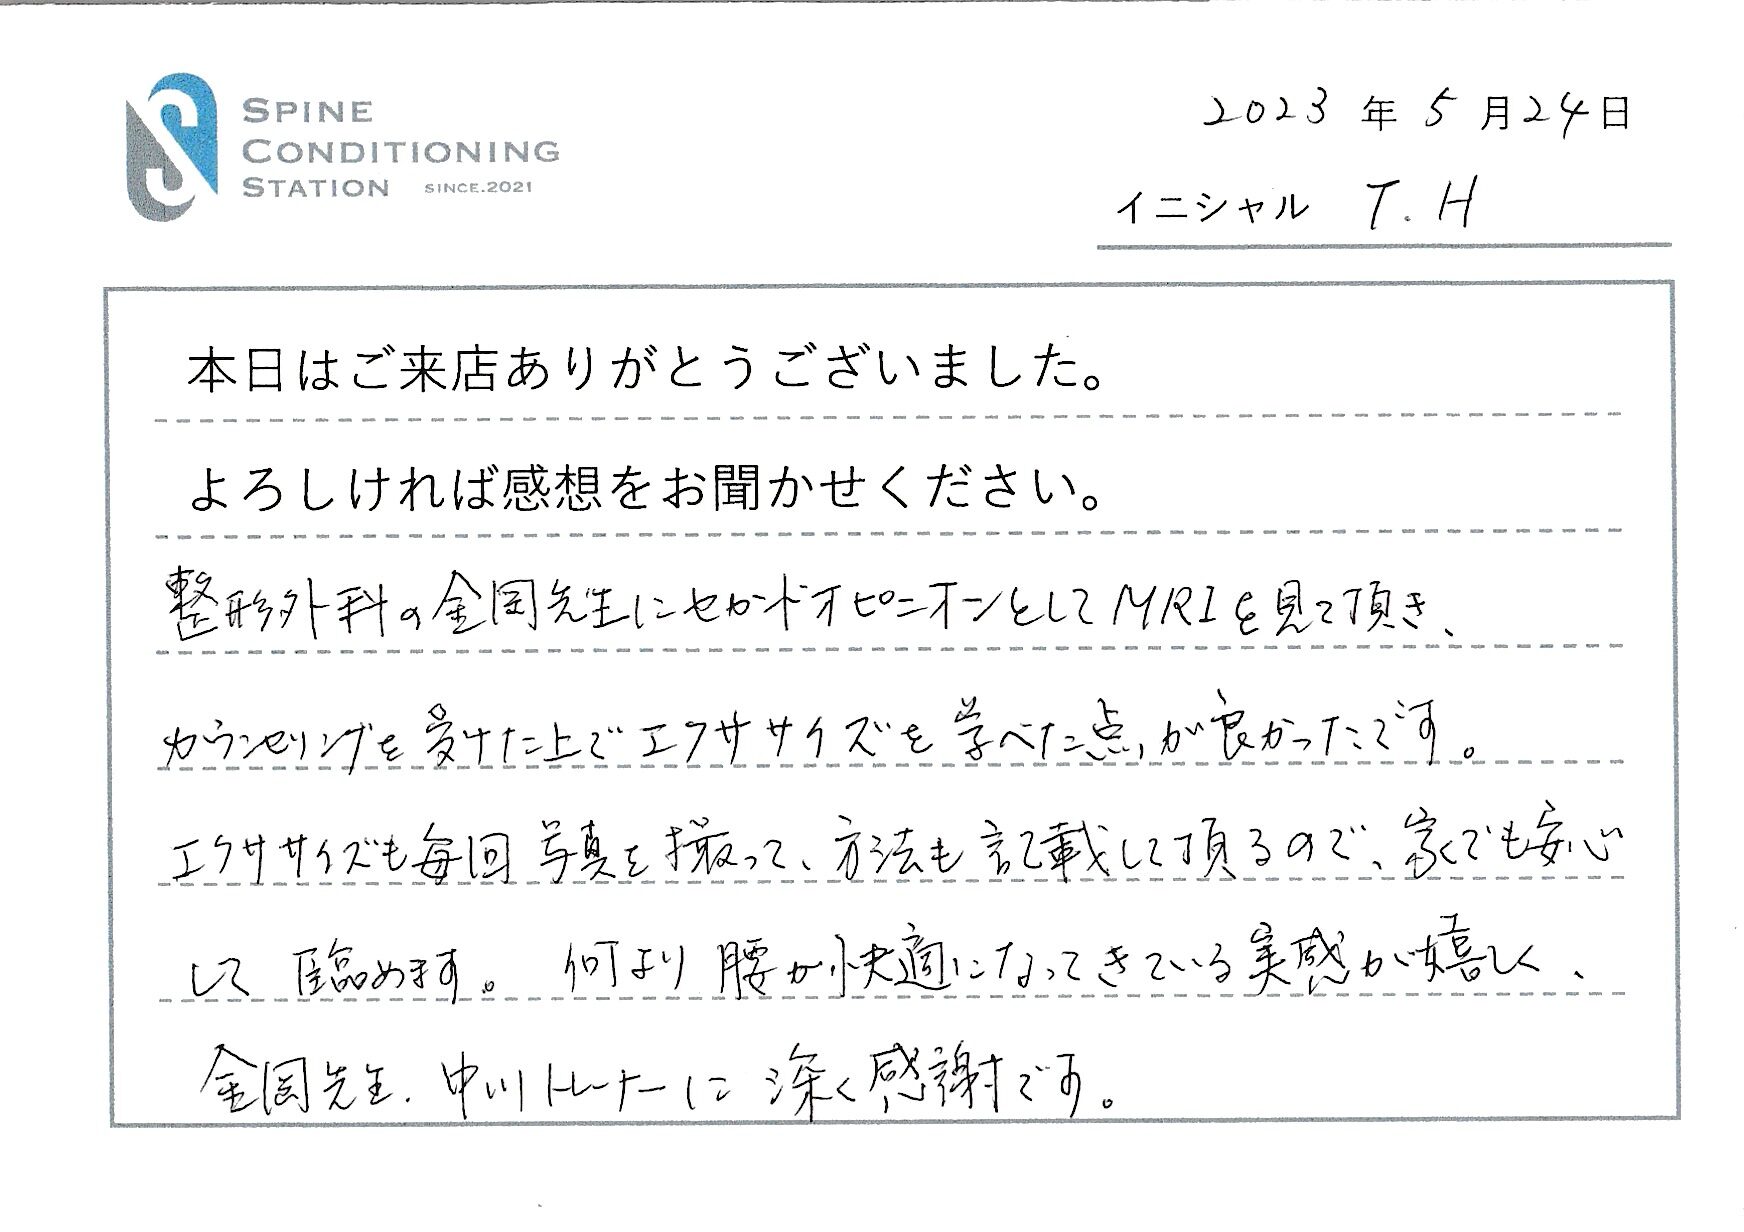 SPINE
CONDITIONING
STATION SINCE.2021
2023年5月24日
イニシャル T.H
本日はご来店ありがとうございました。
よろしければ感想をお聞かせください。
整形外科の金岡先生にセカンドオピニオンとしてMRIを見て頂き、
カウンセリングを受けた上でエクササイズを学べた点が良かったです。
エクササイズも毎回写真を撮って、方法も記載して頂るので、家でも安心
して臨めます。何より腰が快適になってきている実感が嬉しく、
金岡先生、中川トレーナーに深く感謝です。